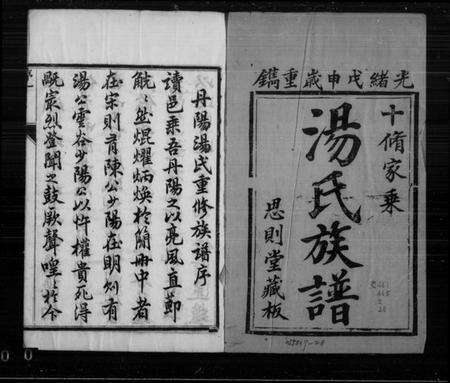 光緒戊申歲重鐫
十脩家乗
湯氏族譜
思則堂藏板
丹陽湯氏重修族譜序
讀邑乗吾丹陽之以亮風直節
觥觥然焜耀炳煥於簡冊中者
在宋則有陳公少陽在明則有
湯公雲谷少陽公以忤權貴死得
旣裳烈登聞之鼓厥聲喤於今